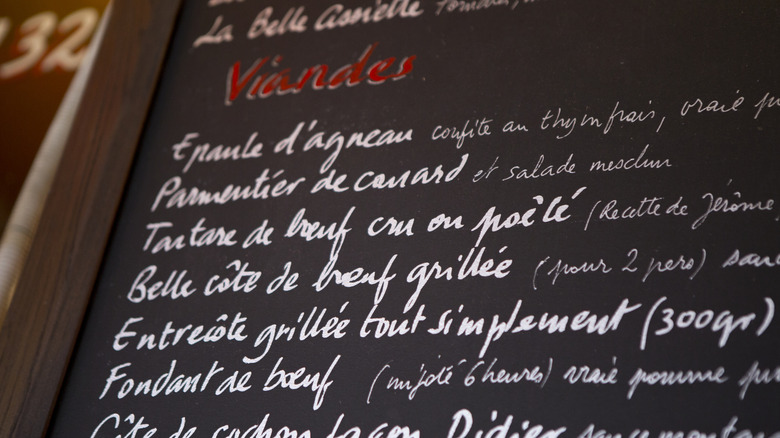 132
La Belle Assiette tomates,
Viandes
Epaule d'agneau confite au thym frais, vraie pu
Parmentier de canard et salade mesclun
Tartare de bœuf cru ou poêlé (Recette de Jérôme
Belle côte de bœuf grillée (pour 2 pers) sauc
Entrecôte grillée tout simplement (300gr)
Fondant de bœuf (mijoté 6 heures) vraie pomme pu
Côte de cochon façon Didier sauce moutar